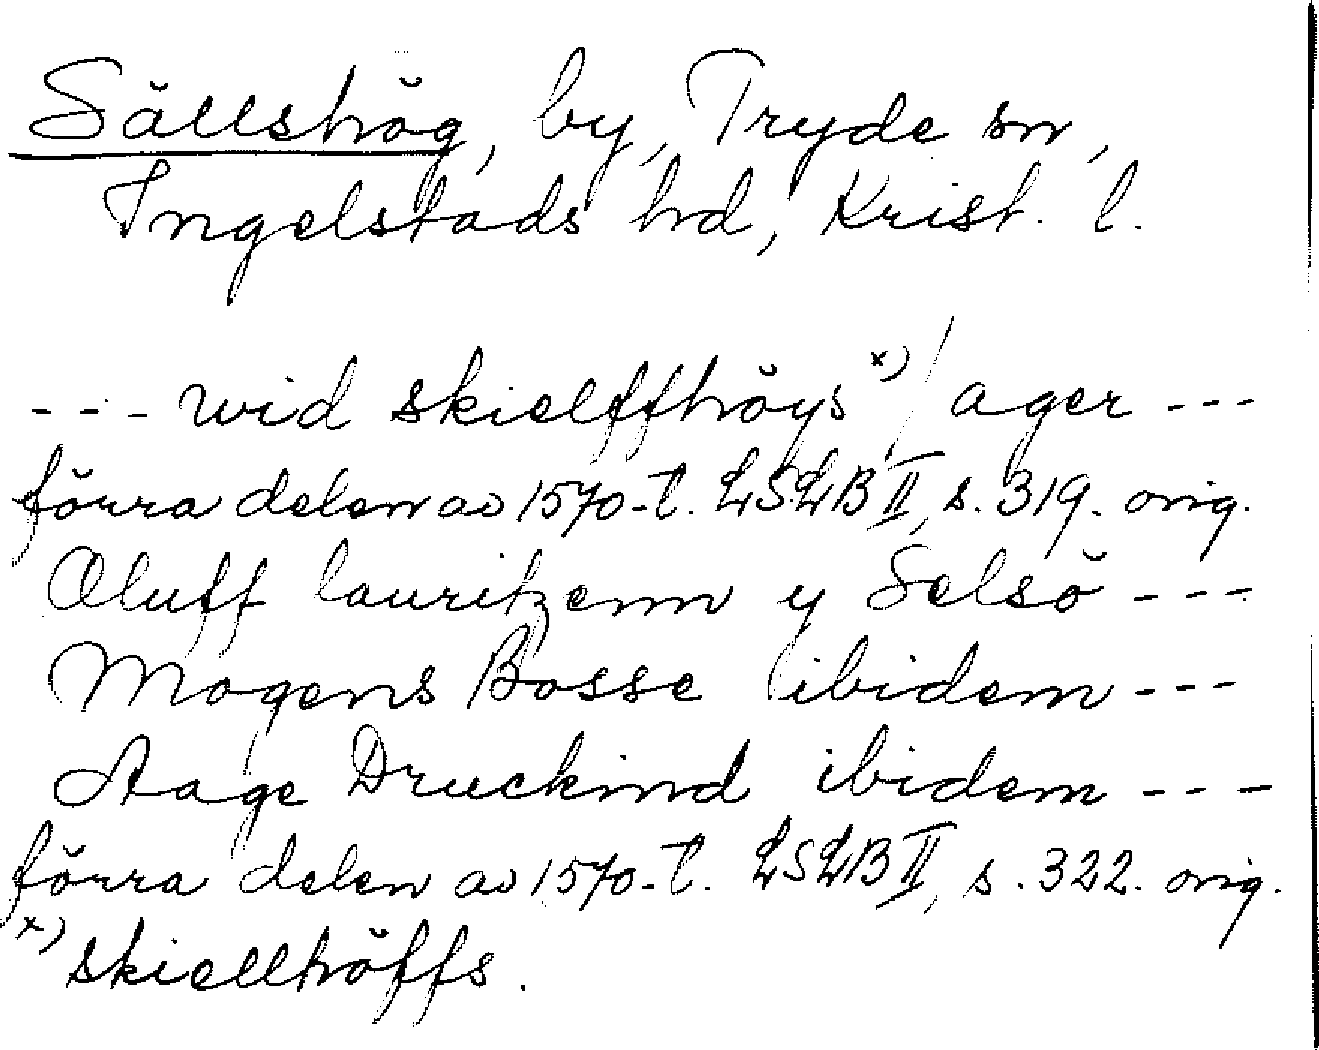 Sällshög, by, Tryde sn,
Ingelstads hd, Krist. l.
--- wid skielffhöys x) / ager ---
förra delen av 1570-t. LSLB II, s. 319. orig.
Oluff lauritzenn y Selsö ---
Mogens Bosse ibidem ---
Aage Druckind ibidem ---
förra delen av 1570-t. LSLB II, s. 322. orig.
x) skiellhöffs.